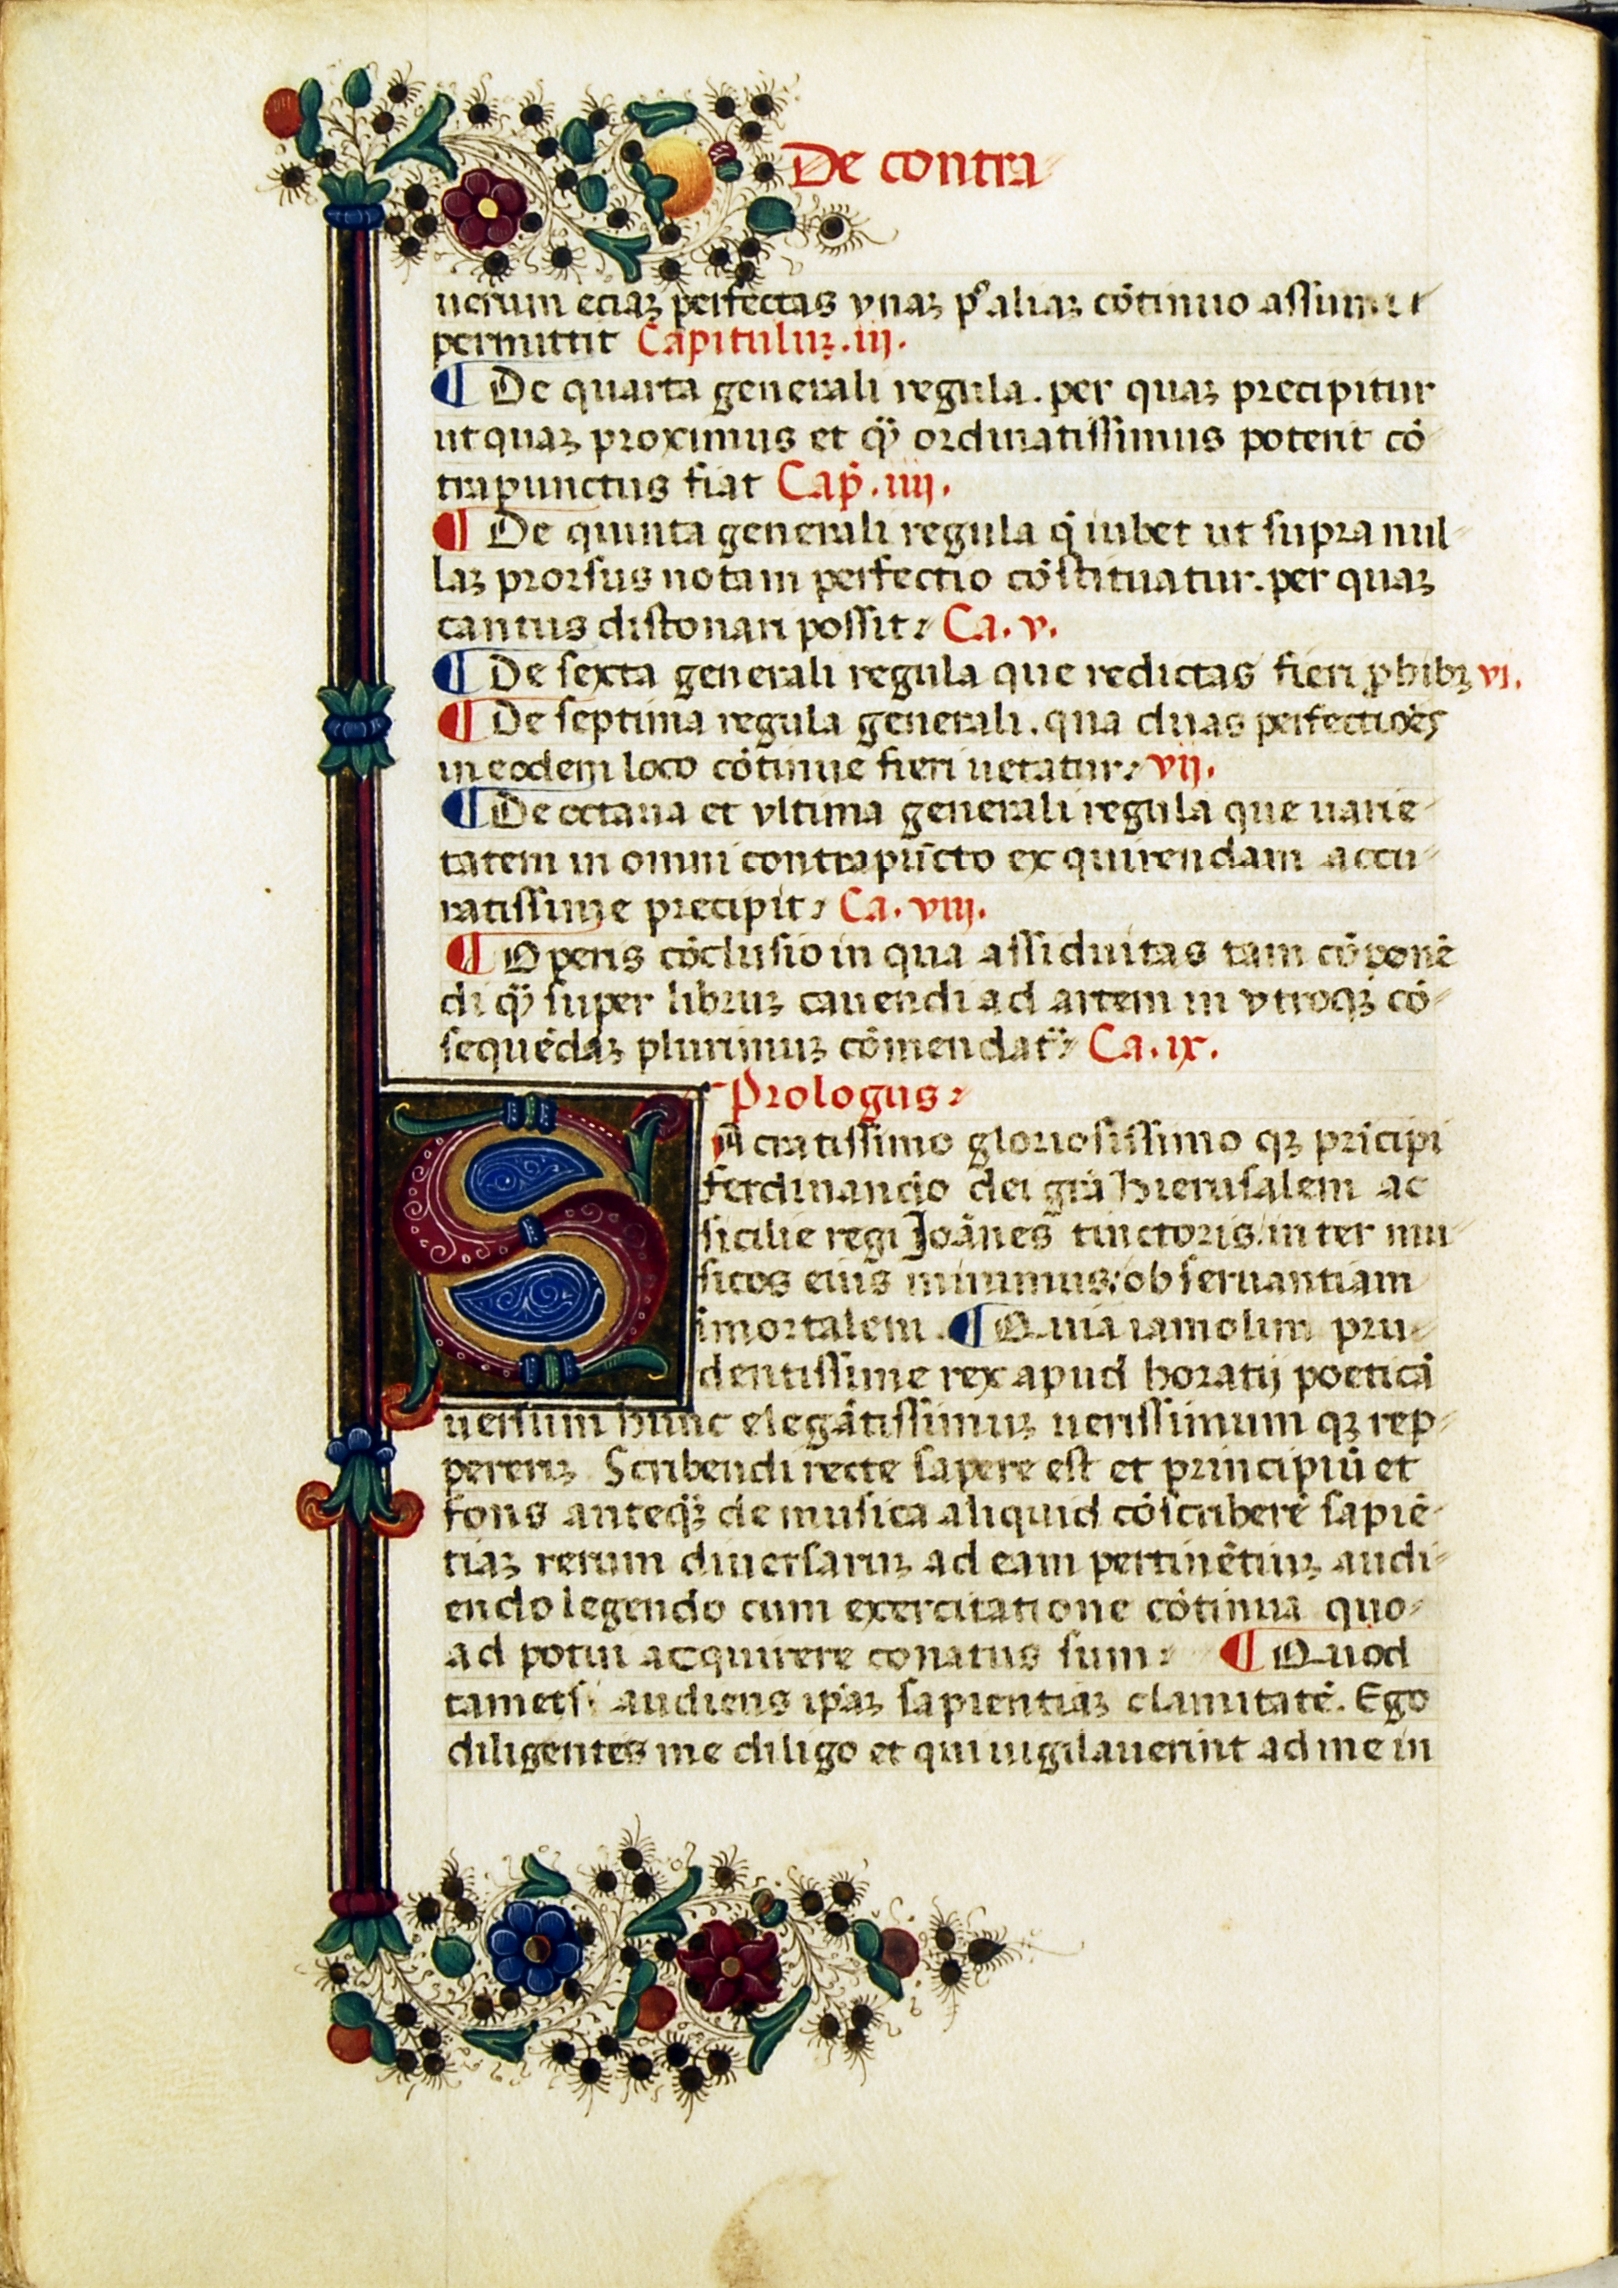 De contra
uerum eciaꝫ perfectas vnaꝫ pͦ aliaꝫ cōtinuo assumi
permittit Capituluꝫ .iij.
¶ De quarta generali regula . per quaꝫ precipitur
ut quaꝫ proximus et qͣꝫ ordinatissimus poterit cō
trapunctus fiat Cap̄ .iiij.
¶ De quinta generali regula q̄ iubet ut supra nul
laꝫ prorsus notam perfectio cōstituatur . per quaꝫ
cantus distonari possit: Ca. v.
¶ De sexta generali regula que redictas fieri ꝓhibꝫ vi.
¶ De septima regula generali . qua duas perfectiōes
in eodem loco cōtinue fieri uetatur: vij.
¶ De octaua et vltima generali regula que uarie
tatem in omni contrapūcto exquirendam accu
ratissime precipit: Ca. viij.
¶ Operis cōclusio in qua assiduitas tam cōponē
di qͣꝫ super libruꝫ canendi ad artem in vtroqꝫ cō
sequēdaꝫ plurimuꝫ cōmendat᷑: Ca. ix.
Prologus:
Sacratissimo gloriosissimo qꝫ prīcipi
ferdinancio dei grā hierusalem ac
sicilie regi Joānes tinctoris inter mu
sicos eius minimus: obseruantiam
imortalem . ¶ Quia iamolim pru
dentissime rex apud horatij poeticā
uersum hunc elegātissimuꝫ uerissimum qꝫ rep
pereriꝫ Scribendi recte sapere est et principiū et
fons anteqͣꝫ de musica aliquid cōscriberē sapiē
tiaꝫ rerum diuersaruꝫ ad eam pertinētiuꝫ audi
endo legendo cum exercitatione cōtinua quo
ad potui acquirere conatus sum: ¶ Quod
tametsi audiens ipāꝫ sapientiaꝫ clamitatē. Ego
diligentes me diligo et qui uigilauerint ad me in